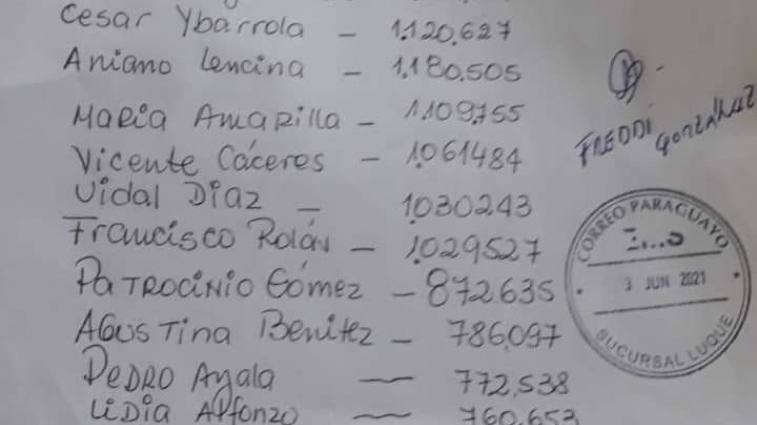 Cesar Ybarrola – 1.120.627
Aniano Lencina – 1.180.505
MARIA AMARILLA – 1.109.155
Vicente Cáceres – 1.061484
Vidal Diaz – 1.030.243
Francisco Rolán – 1.029527
PATROCINIO Gómez – 872.635
AGUSTina Benitez – 786.097
PEDRO Ayala — 772.538
LiDia Alfonzo — 760.653
FREDDI
CORREO PARAGUAYO
3 JUN 2021
SUCURSAL LUQUE